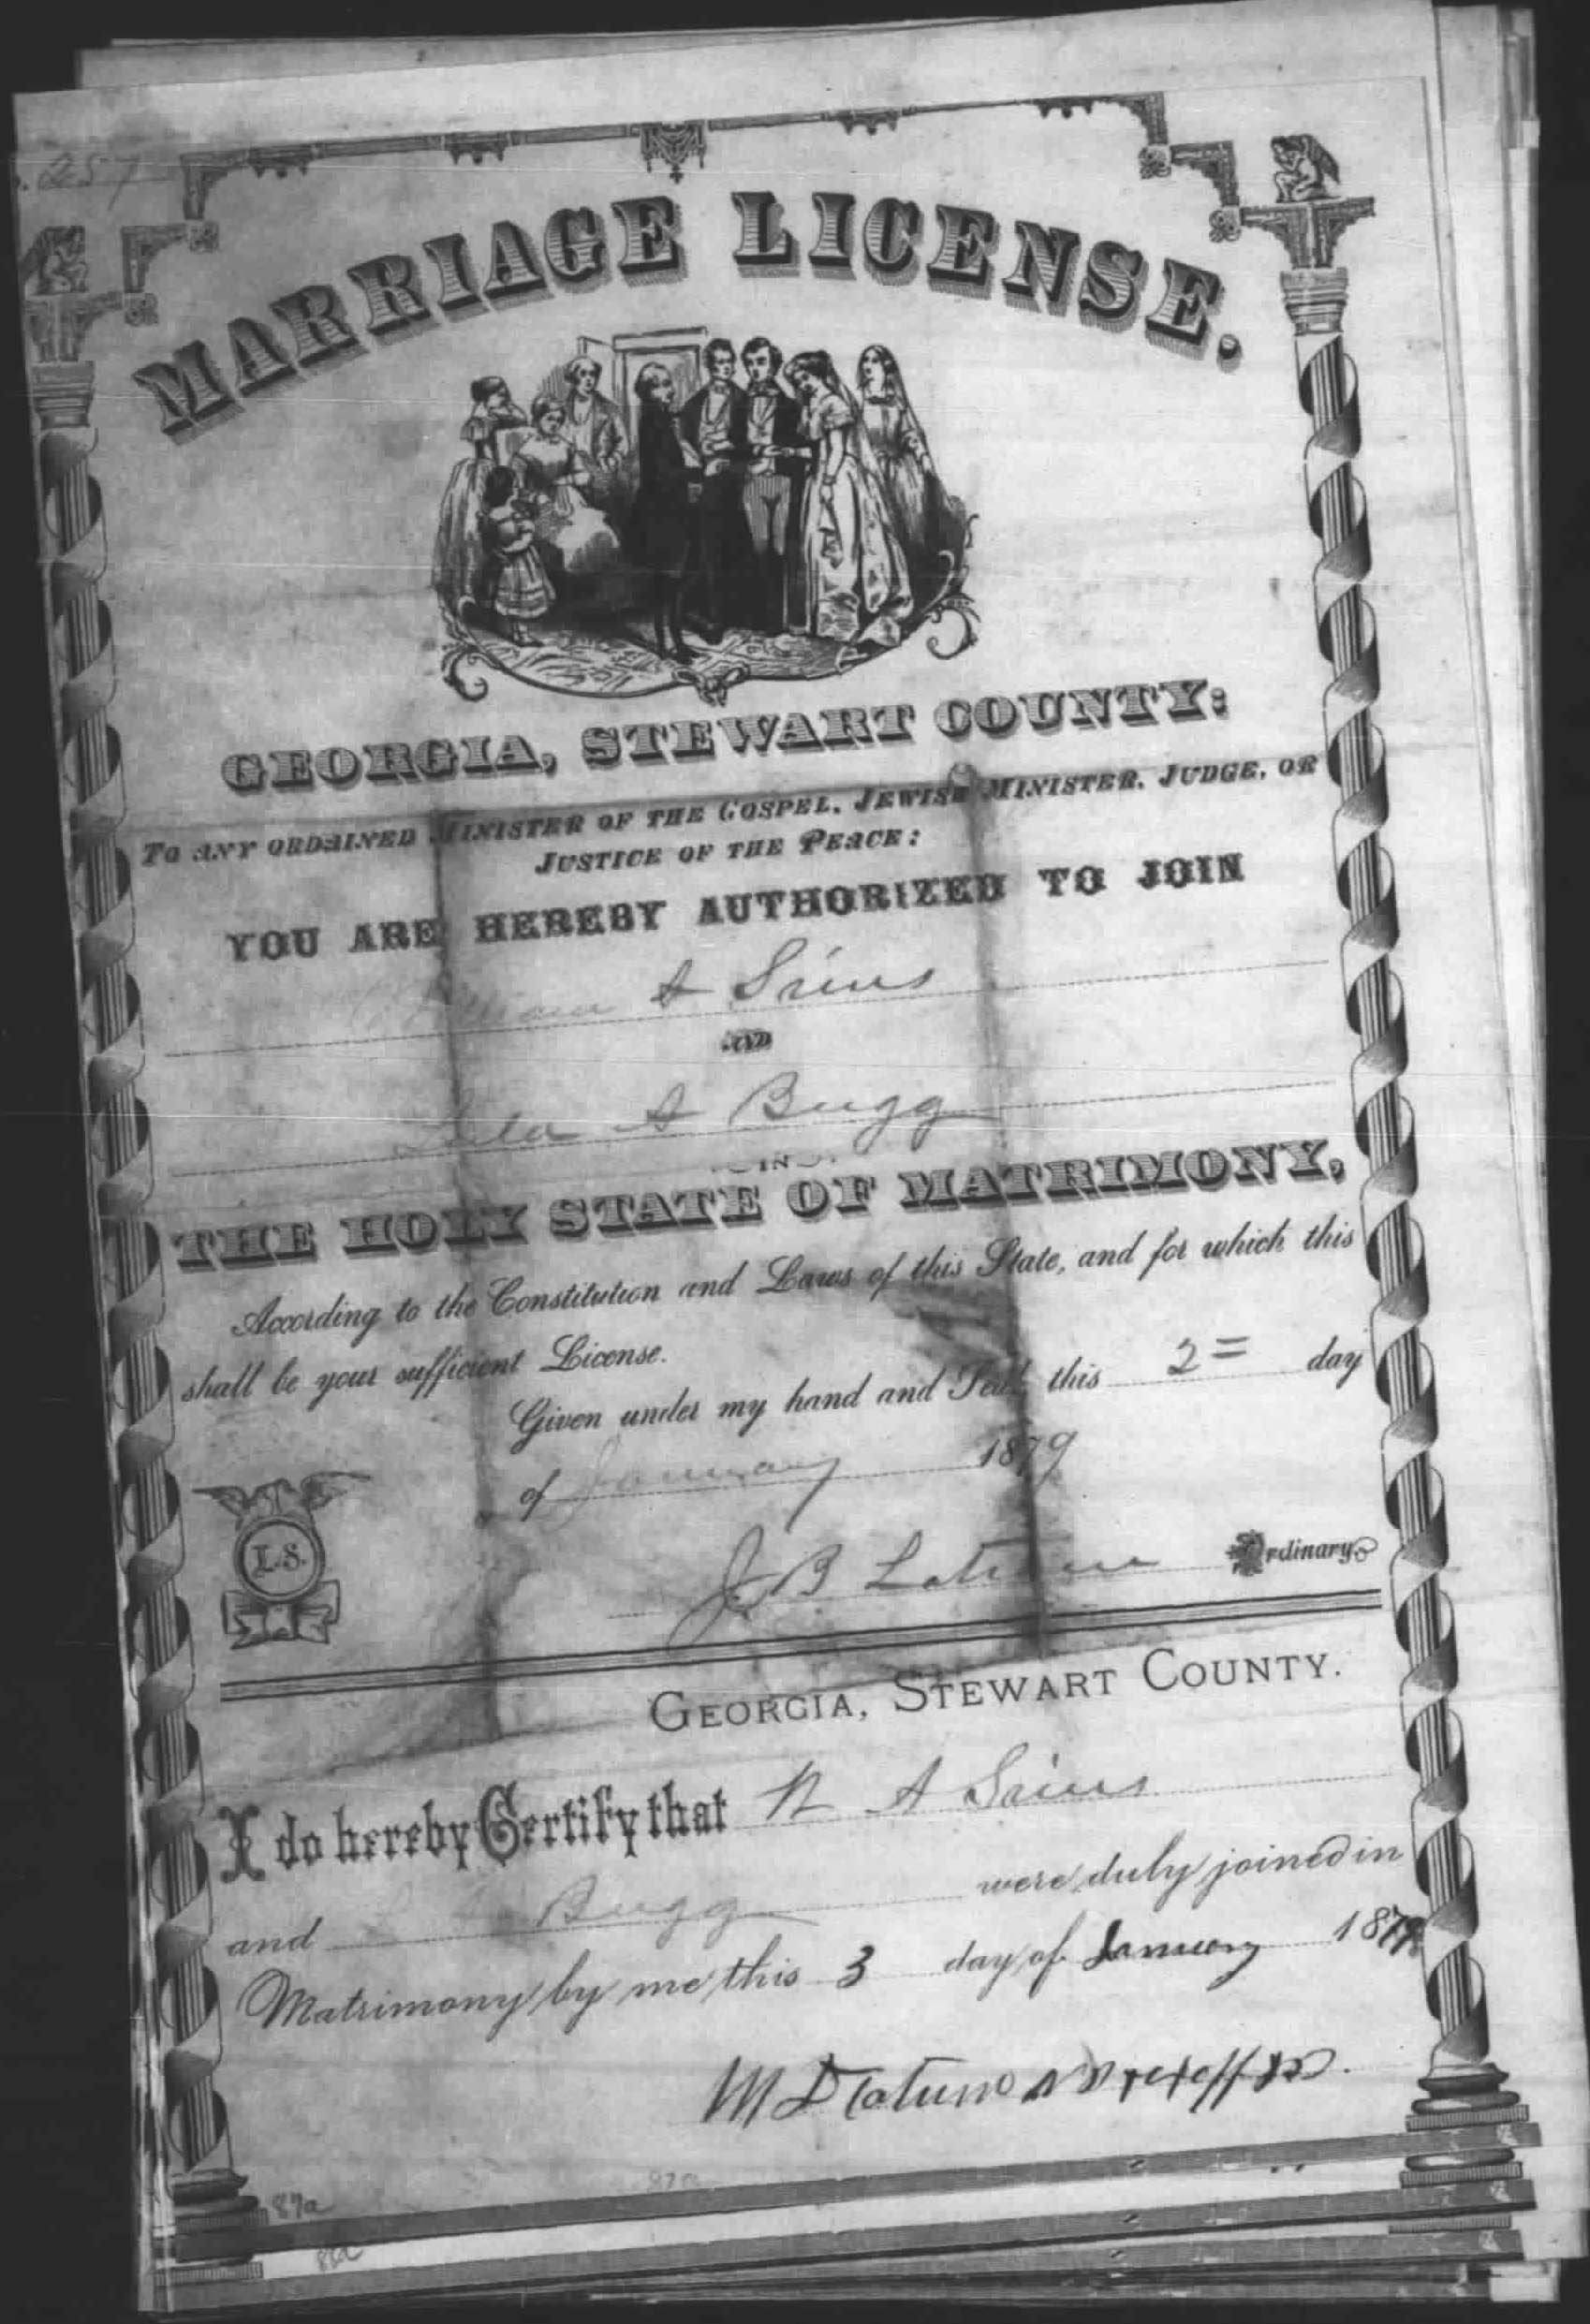 257
MARRIAGE LICENSE.
GEORGIA, STEWART COUNTY:
TO ANY ORDAINED MINISTER OF THE GOSPEL, JEWISH MINISTER, JUDGE, OR
JUSTICE OF THE PEACE:
YOU ARE HEREBY AUTHORIZED TO JOIN
William A Sims
AND
Lula A Bugg
IN
THE HOLY STATE OF MATRIMONY,
According to the Constitution and Laws of this State, and for which this
shall be your sufficient License.
Given under my hand and Seal this 2= day
of January 1879
L.S.
J B Latimer Ordinary
GEORGIA, STEWART COUNTY.
I do hereby Certify that W A Sims
and Bugg were duly joined in
Matrimony by me this 3 day of January 1879
M D Tatum
87a